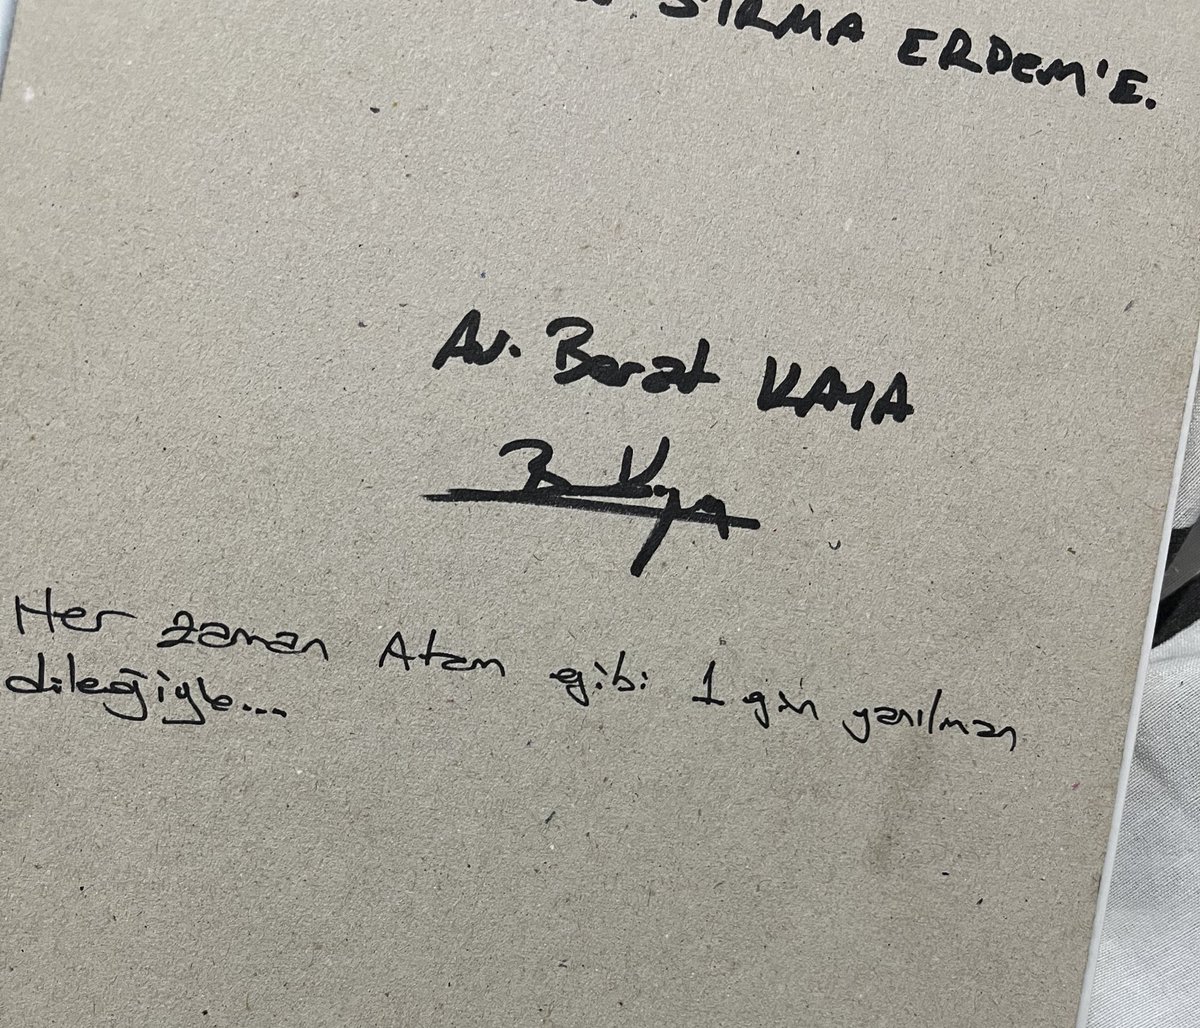 SIRMA ERDEM'E.
Av. Berat KAYA
B Kaya
Her zaman Atam gibi 1 gün yanılman
dileğiyle...